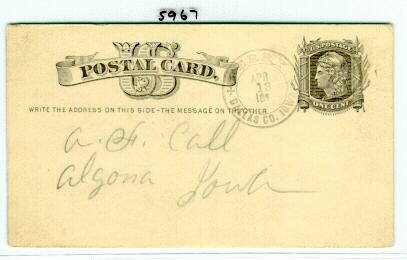 5967
US
POSTAL CARD.
PERRY
APR
13
DALLAS CO. IOWA
U.S. POSTAGE
ONE CENT
WRITE THE ADDRESS ON THIS SIDE - THE MESSAGE ON THE OTHER
A. F. Call
Algona Iowa